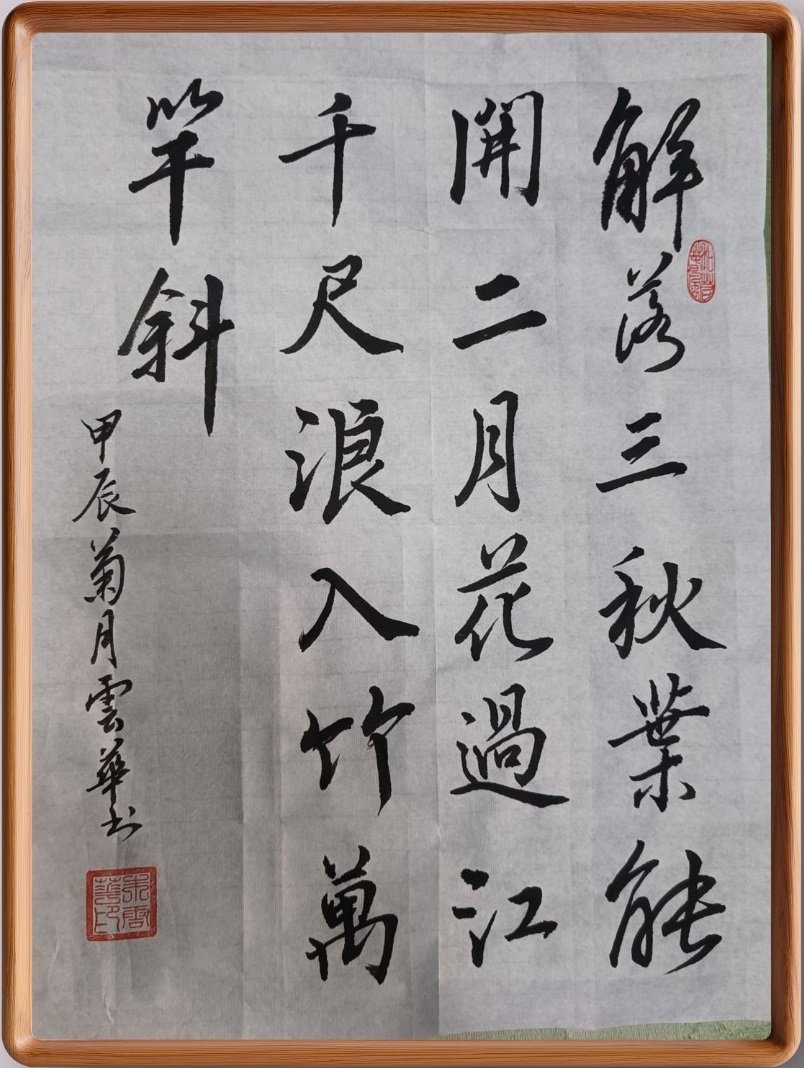 解落三秋葉能
開二月花過江
千尺浪入竹萬
竿斜
甲辰菊月雲華书